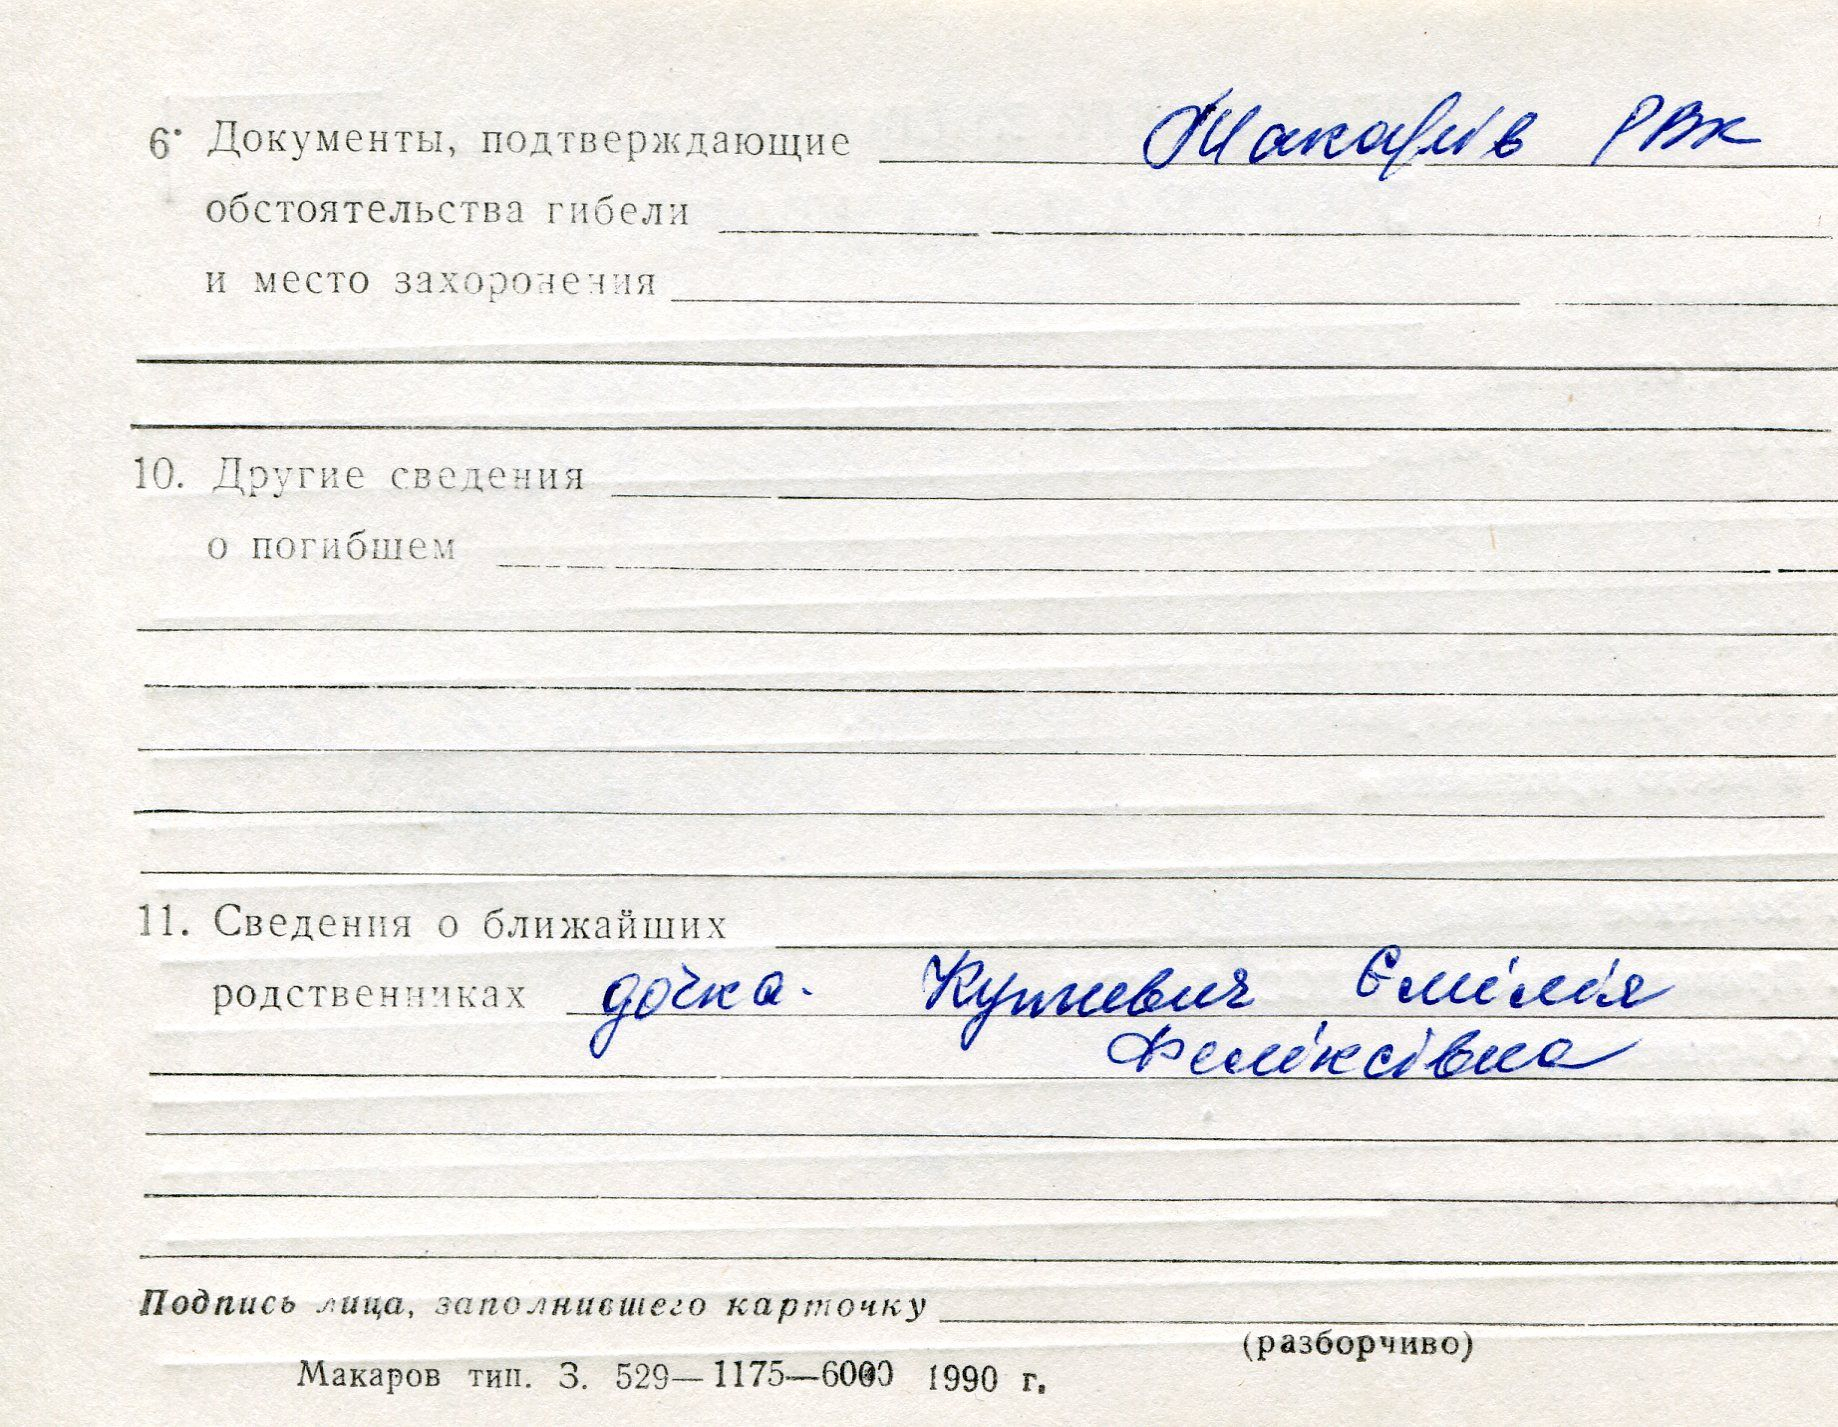 6. Документы, подтверждающие Макарів РВК
обстоятельства гибели
и место захоронения
10. Другие сведения
о погибшем
11. Сведения о ближайших
родственниках дочка. Емілія
Феліксівна
Подпись лица, заполнившего карточку
(разборчиво)
Макаров тип. З. 529—1175—6000 1990 г.